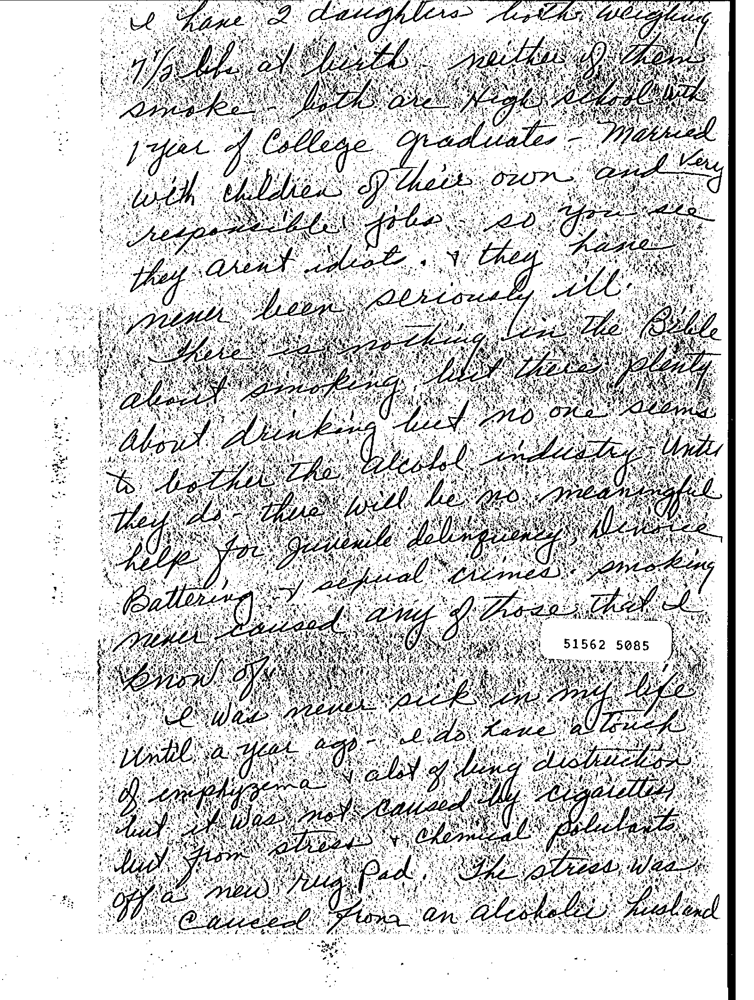 I have 2 daughters both weighing
7½ lbs at birth - neither of them
smoke - both are High school with
1 year of College graduates - Married
with children of their own and very
responsible jobs - so you see
they arent idiots. & they have
never been seriously ill.
There is nothing in the Bible
about smoking, but theres plenty
about drinking but no one seems
to bother the Alcohol industry - Until
they do - there will be no meaningful
help for Juvenile delinquency, Divorce
Battering & sexual crimes. smoking
never caused any of those that I
know of.
51562 5085
I was never sick in my life
Until a year ago - I do have a touch
of emphyzema & alot of lung distruction
but it was not caused by cigarettes,
but from stress & chemical polutants
off a new rug Pad. The stress was
caused from an alcoholic husband